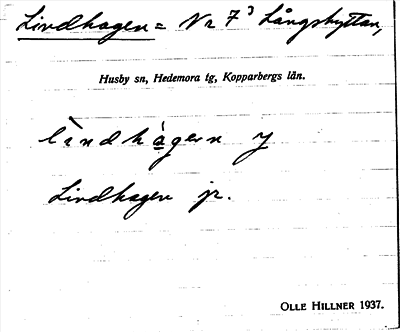 Lindhagen = Nr 7³ Långshyttan,
Husby sn, Hedemora tg, Kopparbergs län.
lìndhàgen y
Lindhagen jr.
OLLE HILLNER 1937.